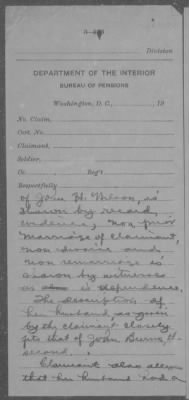 Division
DEPARTMENT OF THE INTERIOR
BUREAU OF PENSIONS
Washington, D. C., 19
No. Claim,
Cert. No.
Claimant,
Soldier,
Co. Reg't
Respectfully
of John H. Wilson, is
shown by record
evidence, non prior
marriage of claimant,
non divorce and
non remarriage is
shown by witnesses
as is dependence.
The description of
her husband, as given
by the claimant closely
fits that of John Burns,
second.
Claimant also alleges
that her husband had a